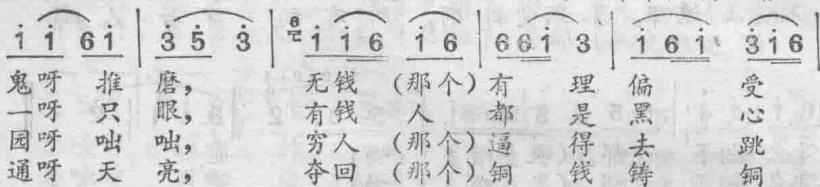 i i 6 i | 3 5 3 | 6 i i 6 i 6 | 6 6 i 3 | i 6 i, 3 i 6 |
鬼呀 推 磨, 无钱 (那个) 有 理 偏 受
一呀 只 眼, 有钱 人 都 是 黑 心
园呀 咄 咄, 穷人 (那个) 逼 得 去 跳
通呀 天 亮, 夺回 (那个) 铜 钱 铸 铜